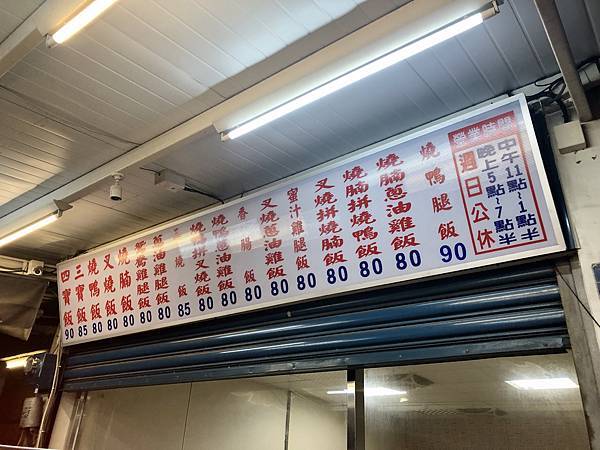 營業時間
中午11點~1點半
晚上5點~7點半
週日公休
燒鴨腿飯 90
燒腩蔥油雞飯 80
燒腩拼燒鴨飯 80
叉燒拼燒腩飯 80
蜜汁雞腿飯 80
叉燒蔥油雞飯 80
香腸飯 80
燒鴨蔥油雞飯 80
燒鴨拼叉燒飯 80
燒飯 85
蔥油雞腿飯 80
鴛鴦雞腿飯 80
燒腩飯 80
叉燒飯 80
燒鴨飯 80
三寶飯 85
四寶飯 90